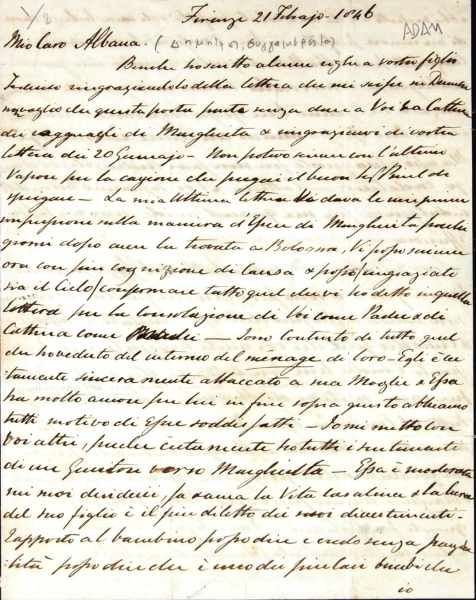 1/2
Firenze 21 Febrajo. 1846
ADAM
Mio Caro Albana.
Benche ho scritto alcune righe a vostro figlio
ringraziandolo della lettera che mi scrisse in
non voglio che questa posta parta senza dare a Voi e a Cattina
dei ragguagli di Margherita & ringraziarvi di vostra
lettera dei 20 Gennajo – Non potevo scrivere con l'ultimo
Vapore per la cagione che pregai il buon di
spiegare – La mia Ultima lettera Vi dava le mie prime
impressione sulla maniera d'Esser di Margherita poche
giorni dopo aver la trovata a Bologna, Vi posso scrivere
ora con piu cognizione di causa & posso (ringraziato
sia il Cielo) confermare tutto quel che vi ho detto in quella
lettera per la Consolazione di Voi come Padre & di
Cattina come Madre – Sono Contento di tutto quel
che ho veduto del interno del menage di loro – Egli è cer
tamente sinceramente attaccato a sua Moglie & Essa
ha molto amore per lui in fine sopra questo abbiamo
tutti motivo di Esser soddisfatti – Io mi metto con
Voi altri, perche certamente ho tutti i sentimenti
di un Genitore verso Margherita – Essa è moderata
nei suoi desiderii, fa sana la Vita casalena & la cura
del suo figlio è il piu diletto dei suoi divertimenti –
Rapporto al bambino posso dire e credo senza parzia
lità posso dire che è uno dei piu cari bimbi che
io